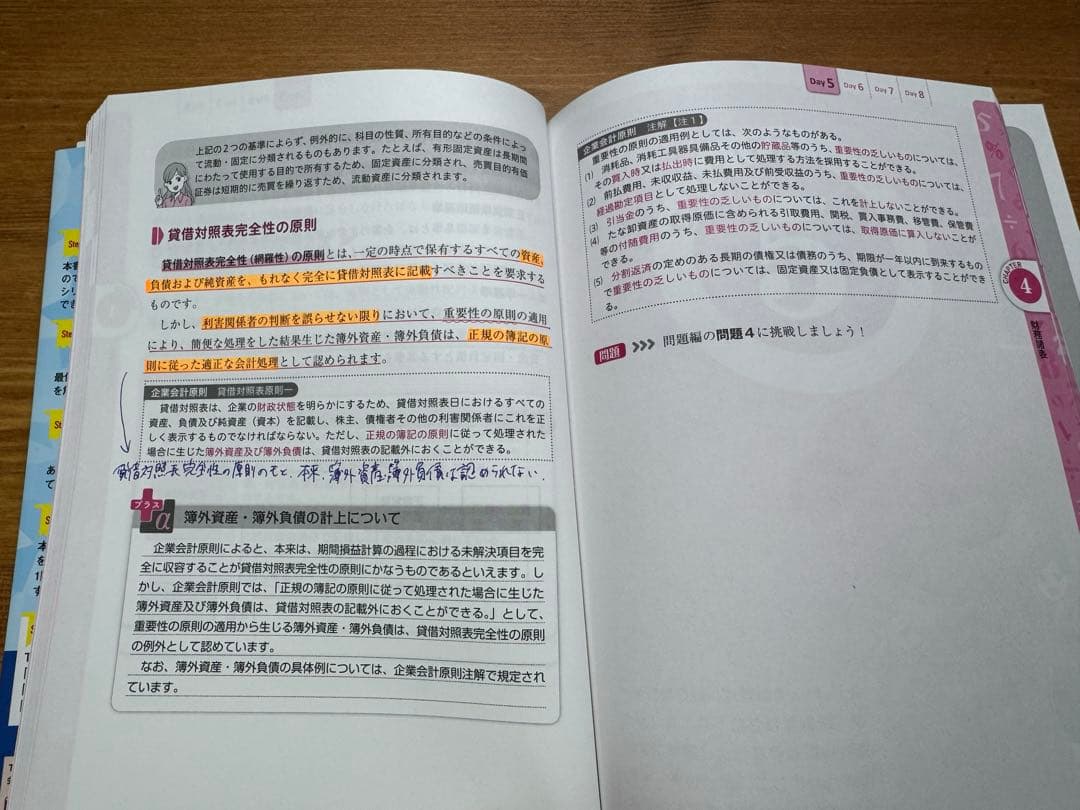 上記の2つの基準によらず、例外的に、科目の性質、所有目的などの条件によっ
て流動・固定に分類されるものもあります。たとえば、有形固定資産は長期間
にわたって使用する目的で所有するため、固定資産に分類され、売買目的有価
証券は短期的に売買を繰り返すため、流動資産に分類されます。
貸借対照表完全性の原則
貸借対照表完全性（網羅性）の原則とは、一定の時点で保有するすべての資産、
負債および純資産を、もれなく完全に貸借対照表に記載すべきことを要求する
ものです。
しかし、利害関係者の判断を誤らせない限りにおいて、重要性の原則の適用
により、簡便な処理をした結果生じた簿外資産・簿外負債は、正規の簿記の原
則に従った適正な会計処理として認められます。
企業会計原則 貸借対照表原則一
貸借対照表は、企業の財政状態を明らかにするため、貸借対照表日におけるすべての
資産、負債及び純資産（資本）を記載し、株主、債権者その他の利害関係者にこれを正
しく表示するものでなければならない。ただし、正規の簿記の原則に従って処理された
場合に生じた簿外資産及び簿外負債は、貸借対照表の記載外におくことができる。
貸借対照表完全性の原則のもと、本来、簿外資産、簿外負債は認められない。
プラスα 簿外資産・簿外負債の計上について
企業会計原則によると、本来は、期間損益計算の過程における未解決項目を完
全に収容することが貸借対照表完全性の原則にかなうものであるといえます。し
かし、企業会計原則では、「正規の簿記の原則に従って処理された場合に生じた
簿外資産及び簿外負債は、貸借対照表の記載外におくことができる。」として、
重要性の原則の適用から生じる簿外資産・簿外負債は、貸借対照表完全性の原則
の例外として認めています。
なお、簿外資産・簿外負債の具体例については、企業会計原則注解で規定され
ています。
Day 5 Day 6 Day 7 Day 8
企業会計原則 注解【注1】
重要性の原則の適用例としては、次のようなものがある。
(1) 消耗品、消耗工具器具備品その他の貯蔵品等のうち、重要性の乏しいものについては、
その買入時又は払出時に費用として処理する方法を採用することができる。
(2) 前払費用、未収収益、未払費用及び前受収益のうち、重要性の乏しいものについては、
経過勘定項目として処理しないことができる。
(3) 引当金のうち、重要性の乏しいものについては、これを計上しないことができる。
(4) たな卸資産の取得原価に含められる引取費用、関税、買入事務費、移管費、保管費
等の付随費用のうち、重要性の乏しいものについては、取得原価に算入しないことが
できる。
(5) 分割返済の定めのある長期の債権又は債務のうち、期限が一年以内に到来するもの
で重要性の乏しいものについては、固定資産又は固定負債として表示することができ
る。
問題 問題編の問題4に挑戦しましょう！
CHAPTER
4
財務諸表